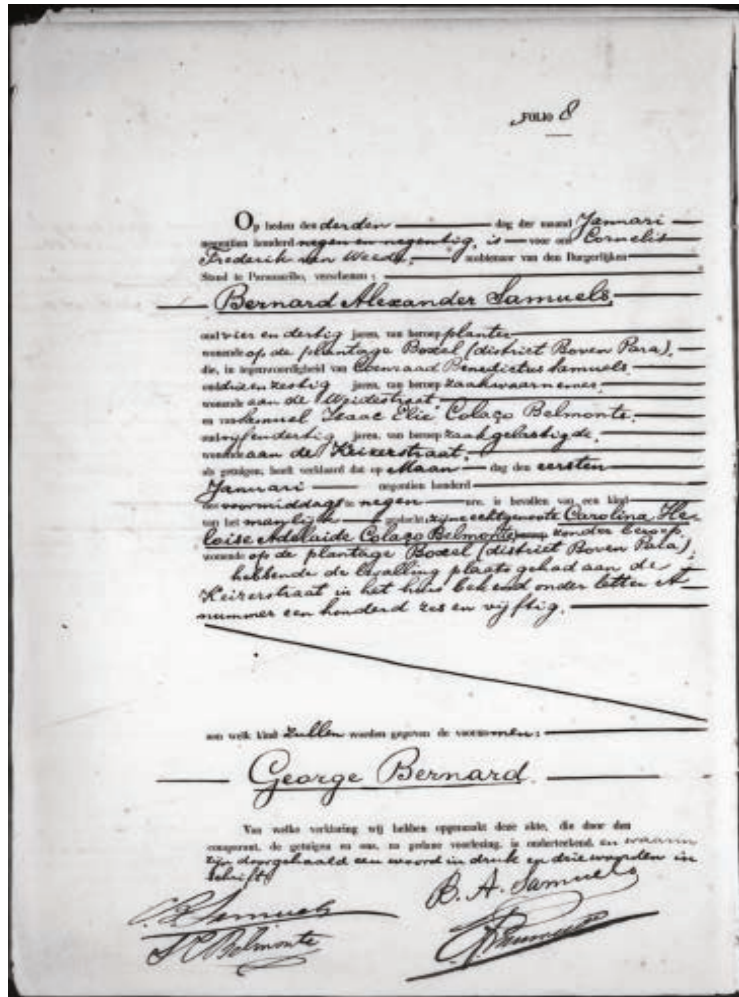 FOLIO 8
Op heden den derden dag der maand Januari
negentien honderd negen en negentig, is voor ons Cornelis
Frederik van ambtenaar van den Burgerlijken
Stand te Paramaribo, verschenen:
Bernard Alexander Samuels,
oud vier en dertig jaren, van beroep planter
wonende op de plantage Boxel (district Boven Para),
die, in tegenwoordigheid van Coenraad Benedictus Samuels
oud zestig jaren, van beroep zaakwaarnemer
wonende aan de Weidestraat
en van Isaac Elie Colaço Belmonte,
oud vyf en dertig jaren, van beroep zaakgelastigde,
wonende aan de Keizerstraat,
als getuigen, heeft verklaard dat op Maandag den eersten
Januari negentien honderd
des voormiddags te negen ure, is bevallen van een kind
van het manlijk geslacht zijne echtgenoote Carolina He-
loise Adelaide Colaço Belmonte zonder beroep,
wonende op de plantage Boxel (district Boven Para),
hebbende de bevalling plaats gehad aan de
Keizerstraat in het huis bekend onder letter A
nummer een honderd zes en vijftig.
aan welk kind zullen worden gegeven de voornamen:
George Bernard.
Van welke verklaring wij hebben opgemaakt deze akte, die door den
comparant, de getuigen en ons, na gedane voorlezing, is onderteekend, en waarin
zijn doorgehaald een woord in druk en drie woorden in
schrift
B. A. Samuels
C. B. Samuels
Belmonte